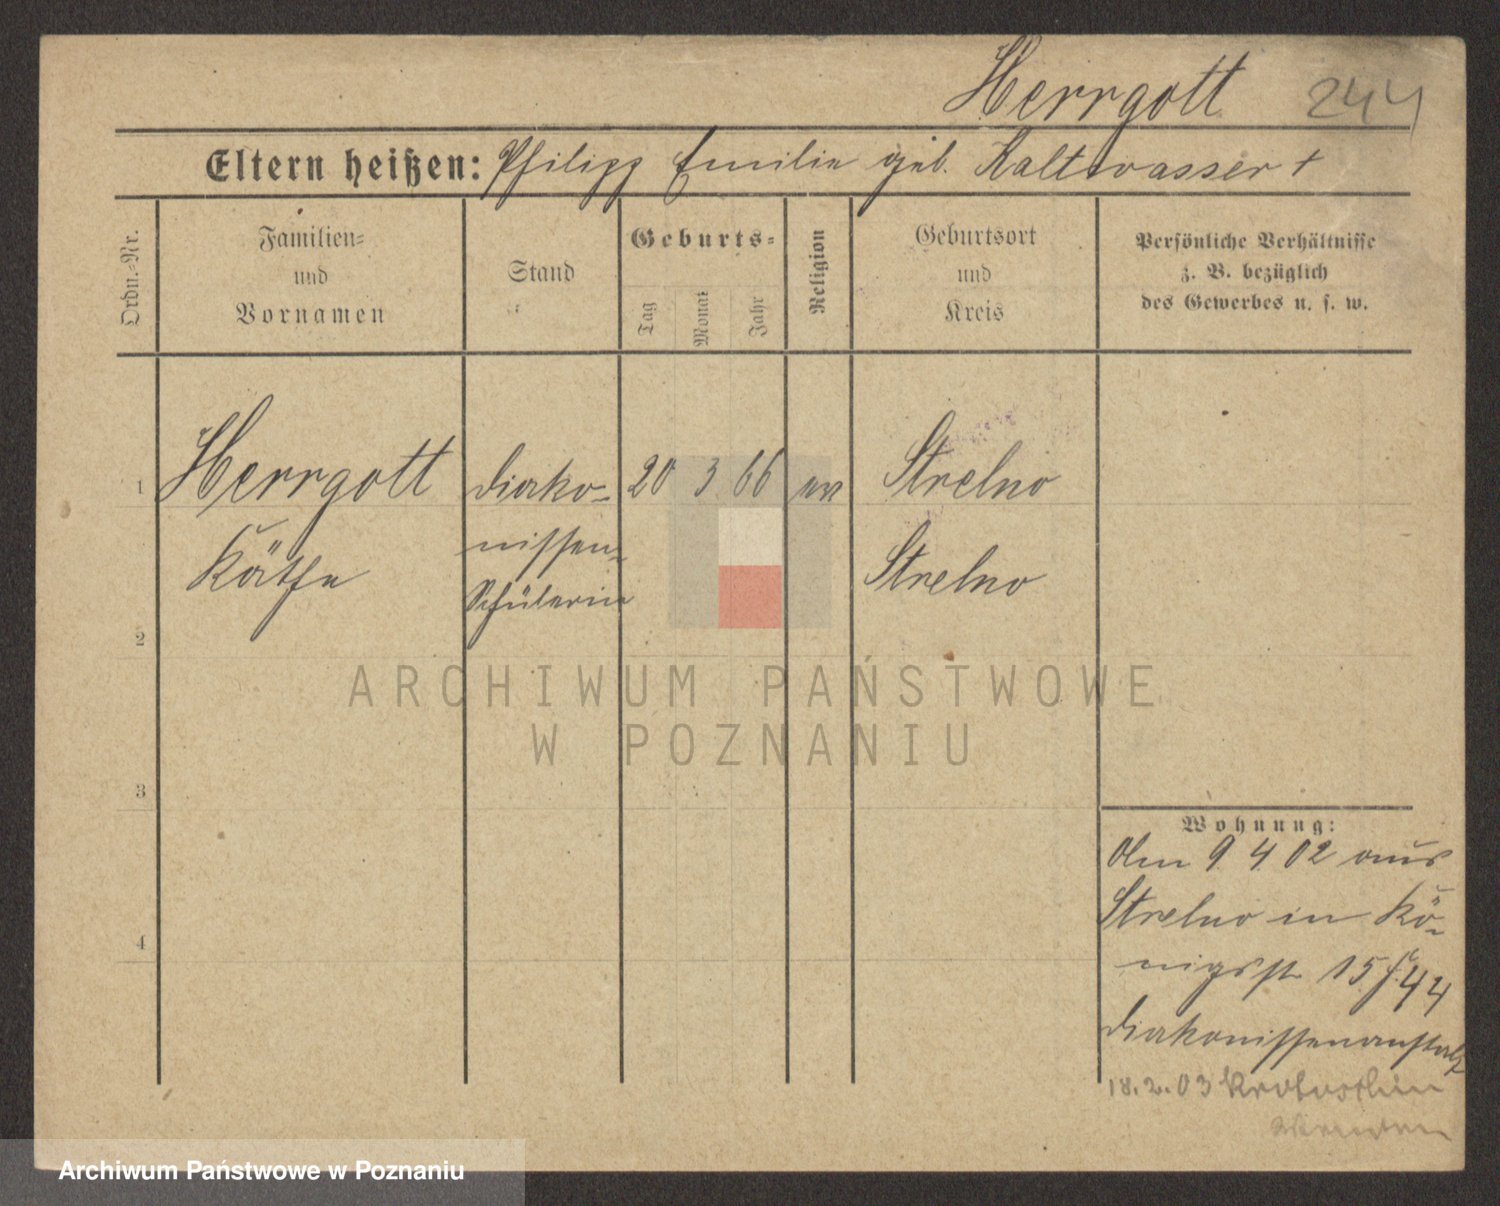 Herrgott 244
Eltern heißen: Philipp Emilie geb. Kaltwasser †
Ordn.-Nr.
Familien-
und
Vornamen
Stand
Geburts-
Tag
Monat
Jahr
Religion
Geburtsort
und
Kreis
Persönliche Verhältnisse
z. B. bezüglich
des Gewerbes u. s. w.
1 Herrgott Diako- 20 3 66 ev Strelno
Käthe nissen- Strelno
Schülerin
2
ARCHIWUM PAŃSTWOWE
W POZNANIU
3
4
Wohnung:
Am 9 4 02 aus
Strelno in Kö-
nigsstr 15
Diakonissenanstalt
18.2.03
Archiwum Państwowe w Poznaniu